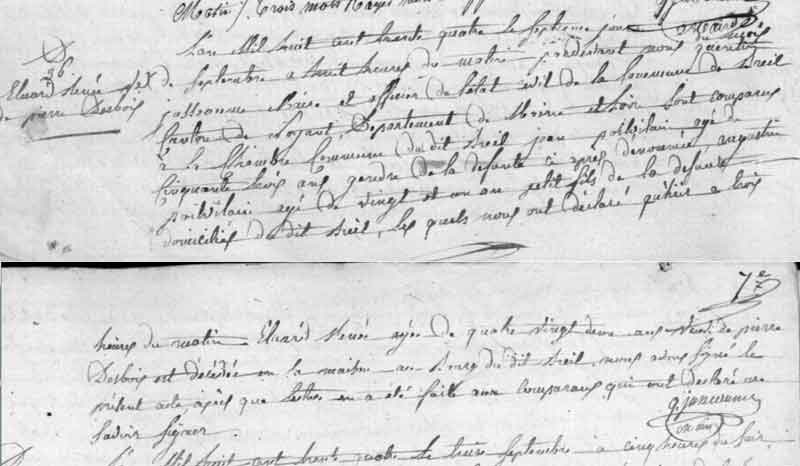 matin /. trois mots rayés
L'an Mil huit cent trente quatre le septieme jour
du mois
de septembre a huit heures du matin pardevant nous quentin
jassonnue Maire et officier de l'etat civil de la Commune de Breil
Canton de Noyant, Departement de Maine et Loire sont comparus
a la Chambre Commune du dit Breil jean poitvilain agé de
Cinquante trois ans gendre de la defunte ci apres denommée, augustin
poitvilain agé de vingt et un an petit fils de la defunte
domiciliés du dit Breil, les quels nous ont declaré qu'hier a trois
26
Eluard Renée
de pierre Desbois
7e
heures du matin Eluard Renée agée de quatre vingt deux ans veuve de pierre
Desbois est décédée en la maison au bourg du dit Breil, nous avons signé le
présent acte, apres que lecture en a été faite aux comparans qui ont declaré ne
savoir signer.
maire
L'an Mil huit cent trente quatre le treize septembre a cinq heures du soir